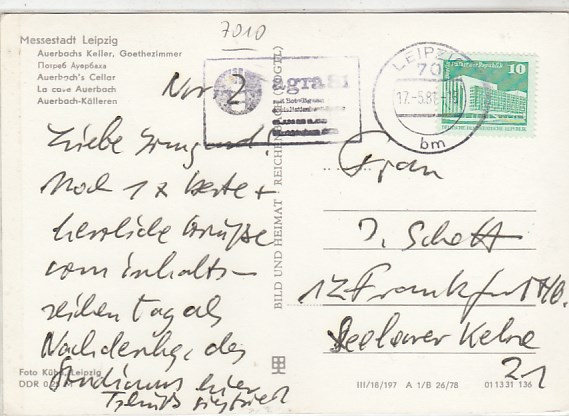 7010
Messestadt Leipzig
Auerbachs Keller, Goethezimmer
Погреб Ауербаха
Auerbach's Cellar
La cave Auerbach
Auerbach-Källeren
Nr 2
agra 81
LEIPZIG
701
17.-5.81
bm
10
DEUTSCHE DEMOKRATISCHE REPUBLIK
Liebe Irmgard!
Noch 1 x beste +
herzliche Grüße
vom inhalts-
reichen Tag als
des
Studiums hier
BILD UND HEIMAT REICHENBACH (VOGTL)
Frau
J. Schott
12 Frankfurt/O.
Seelower Kehre
21
Foto Kühn, Leipzig
DDR 0,20 M
III/18/197 A 1/B 26/78 01 13 31 136